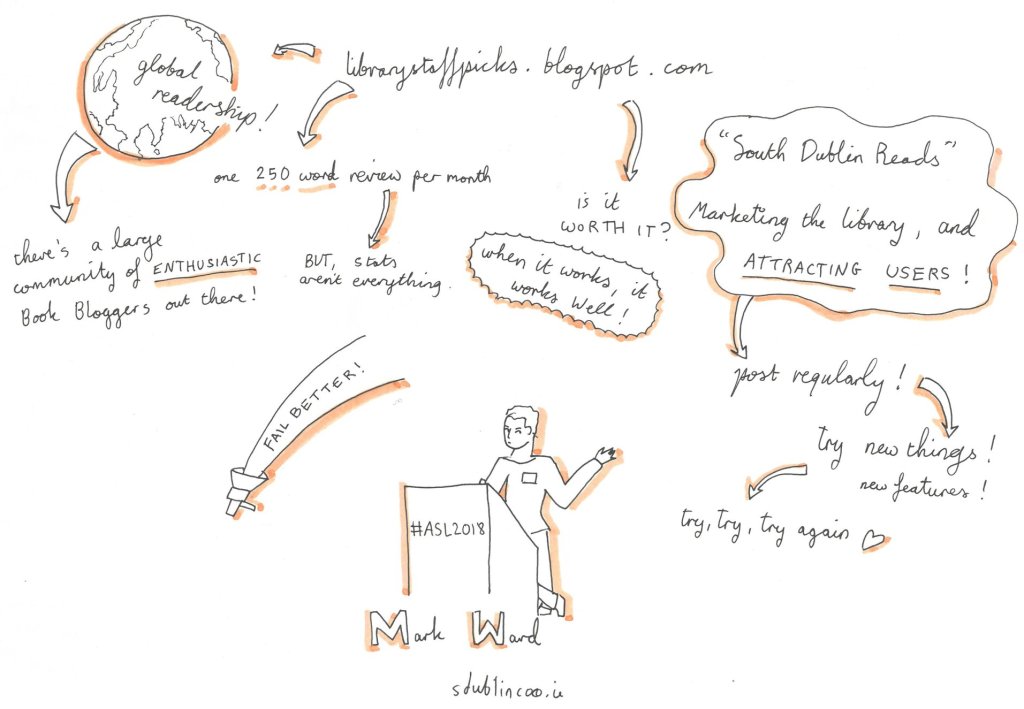 global
readership!
librarystaffpicks.blogspot.com
one 250 word review per month
there's a large
community of ENTHUSIASTIC
Book Bloggers out there!
BUT, stats
aren't everything.
is it
WORTH IT?
when it works, it
works well!
"South Dublin Reads"
Marketing the library, and
ATTRACTING USERS!
post regularly!
try new things!
new features!
try, try, try again
FAIL BETTER!
#ASL2018
Mark Ward
sdublincoco.ie